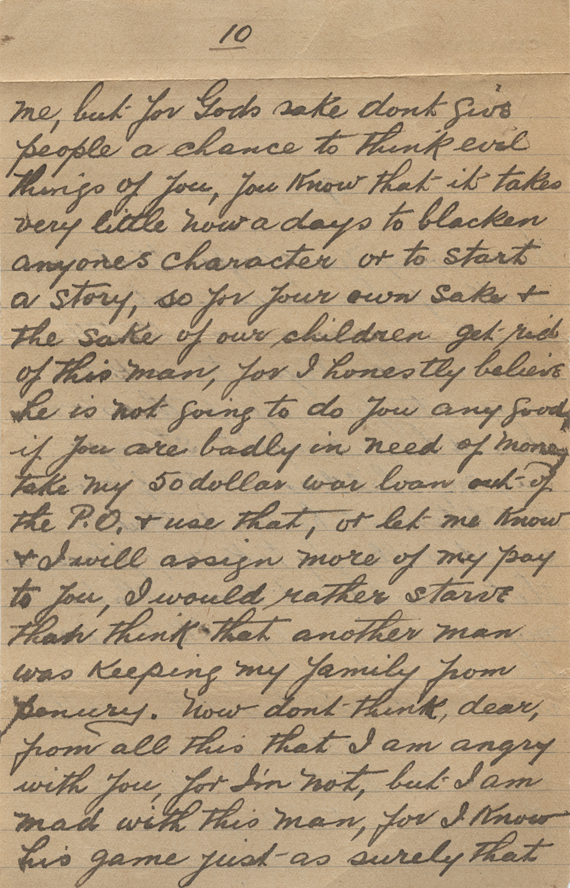 10
me, but for Gods sake dont give
people a chance to think evil
things of you, you know that it takes
very little now a days to blacken
anyones character or to start
a story, so for your own sake +
the sake of our children get rid
of this man, for I honestly believe
he is not going to do you any good,
if you are badly in need of money
take my 50 dollar war loan out of
the P.O. + use that, or let me know
+ I will assign more of my pay
to you, I would rather starve
than think that another man
was keeping my family from
penury. Now dont think, dear,
from all this that I am angry
with you, for I'm not, but I am
mad with this man, for I know
his game just as surely that